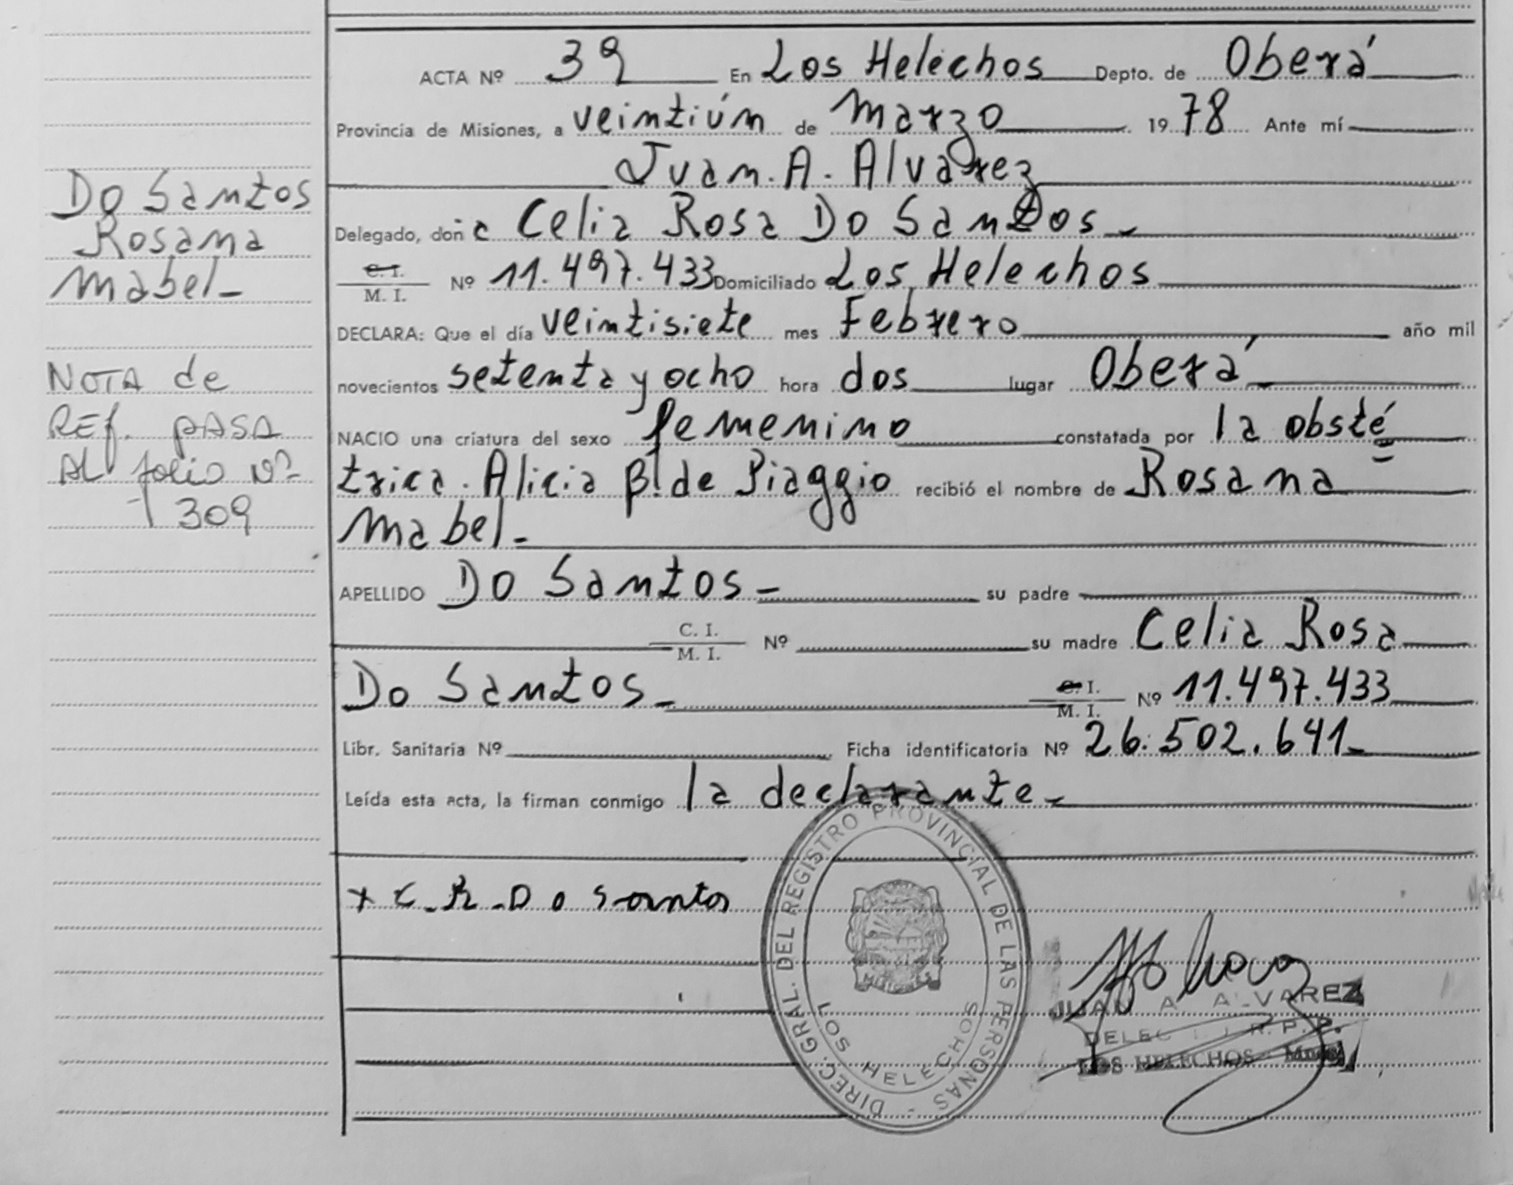 Do Santos
Rosana
Mabel-
NOTA de
REf. PASA
AL folio Nº
309
ACTA Nº 39 En Los Helechos Depto. de Oberá
Provincia de Misiones, a veintiún de Marzo 1978 Ante mí
Juan. A. Alvarez
Delegado, doña Celia Rosa Do Santos.-
C. I.
M. I. Nº 11.497.433 Domiciliado Los Helechos
DECLARA: Que el día veintisiete mes Febrero año mil
novecientos setenta y ocho hora dos lugar Oberá
NACIO una criatura del sexo femenino constatada por la obsté=
trica. Alicia B. de Piaggio recibió el nombre de Rosana
Mabel.-
APELLIDO Do Santos- su padre
C. I.
M. I. Nº su madre Celia Rosa
Do Santos.-
C. I.
M. I. Nº 11.497.433
Libr. Sanitaria Nº Ficha identificatoria Nº 26.502.641-
Leída esta acta, la firman conmigo la declarante-
x C.R.Do Santos
DIREC. GRAL. DEL REGISTRO PROVINCIAL DE LAS PERSONAS -
LOS HELECHOS
MISIONES
JUAN A. ALVAREZ
R. P. P.
LOS HELECHOS